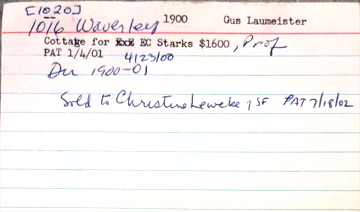 [1020]
1016 Waverley 1900 Gus Laumeister
Cottage for XxX EC Starks $1600, Prof
PAT 1/4/01 4/23/00
Dir 1900-01
Sold to Christine Leweke, SF PAT 7/18/02